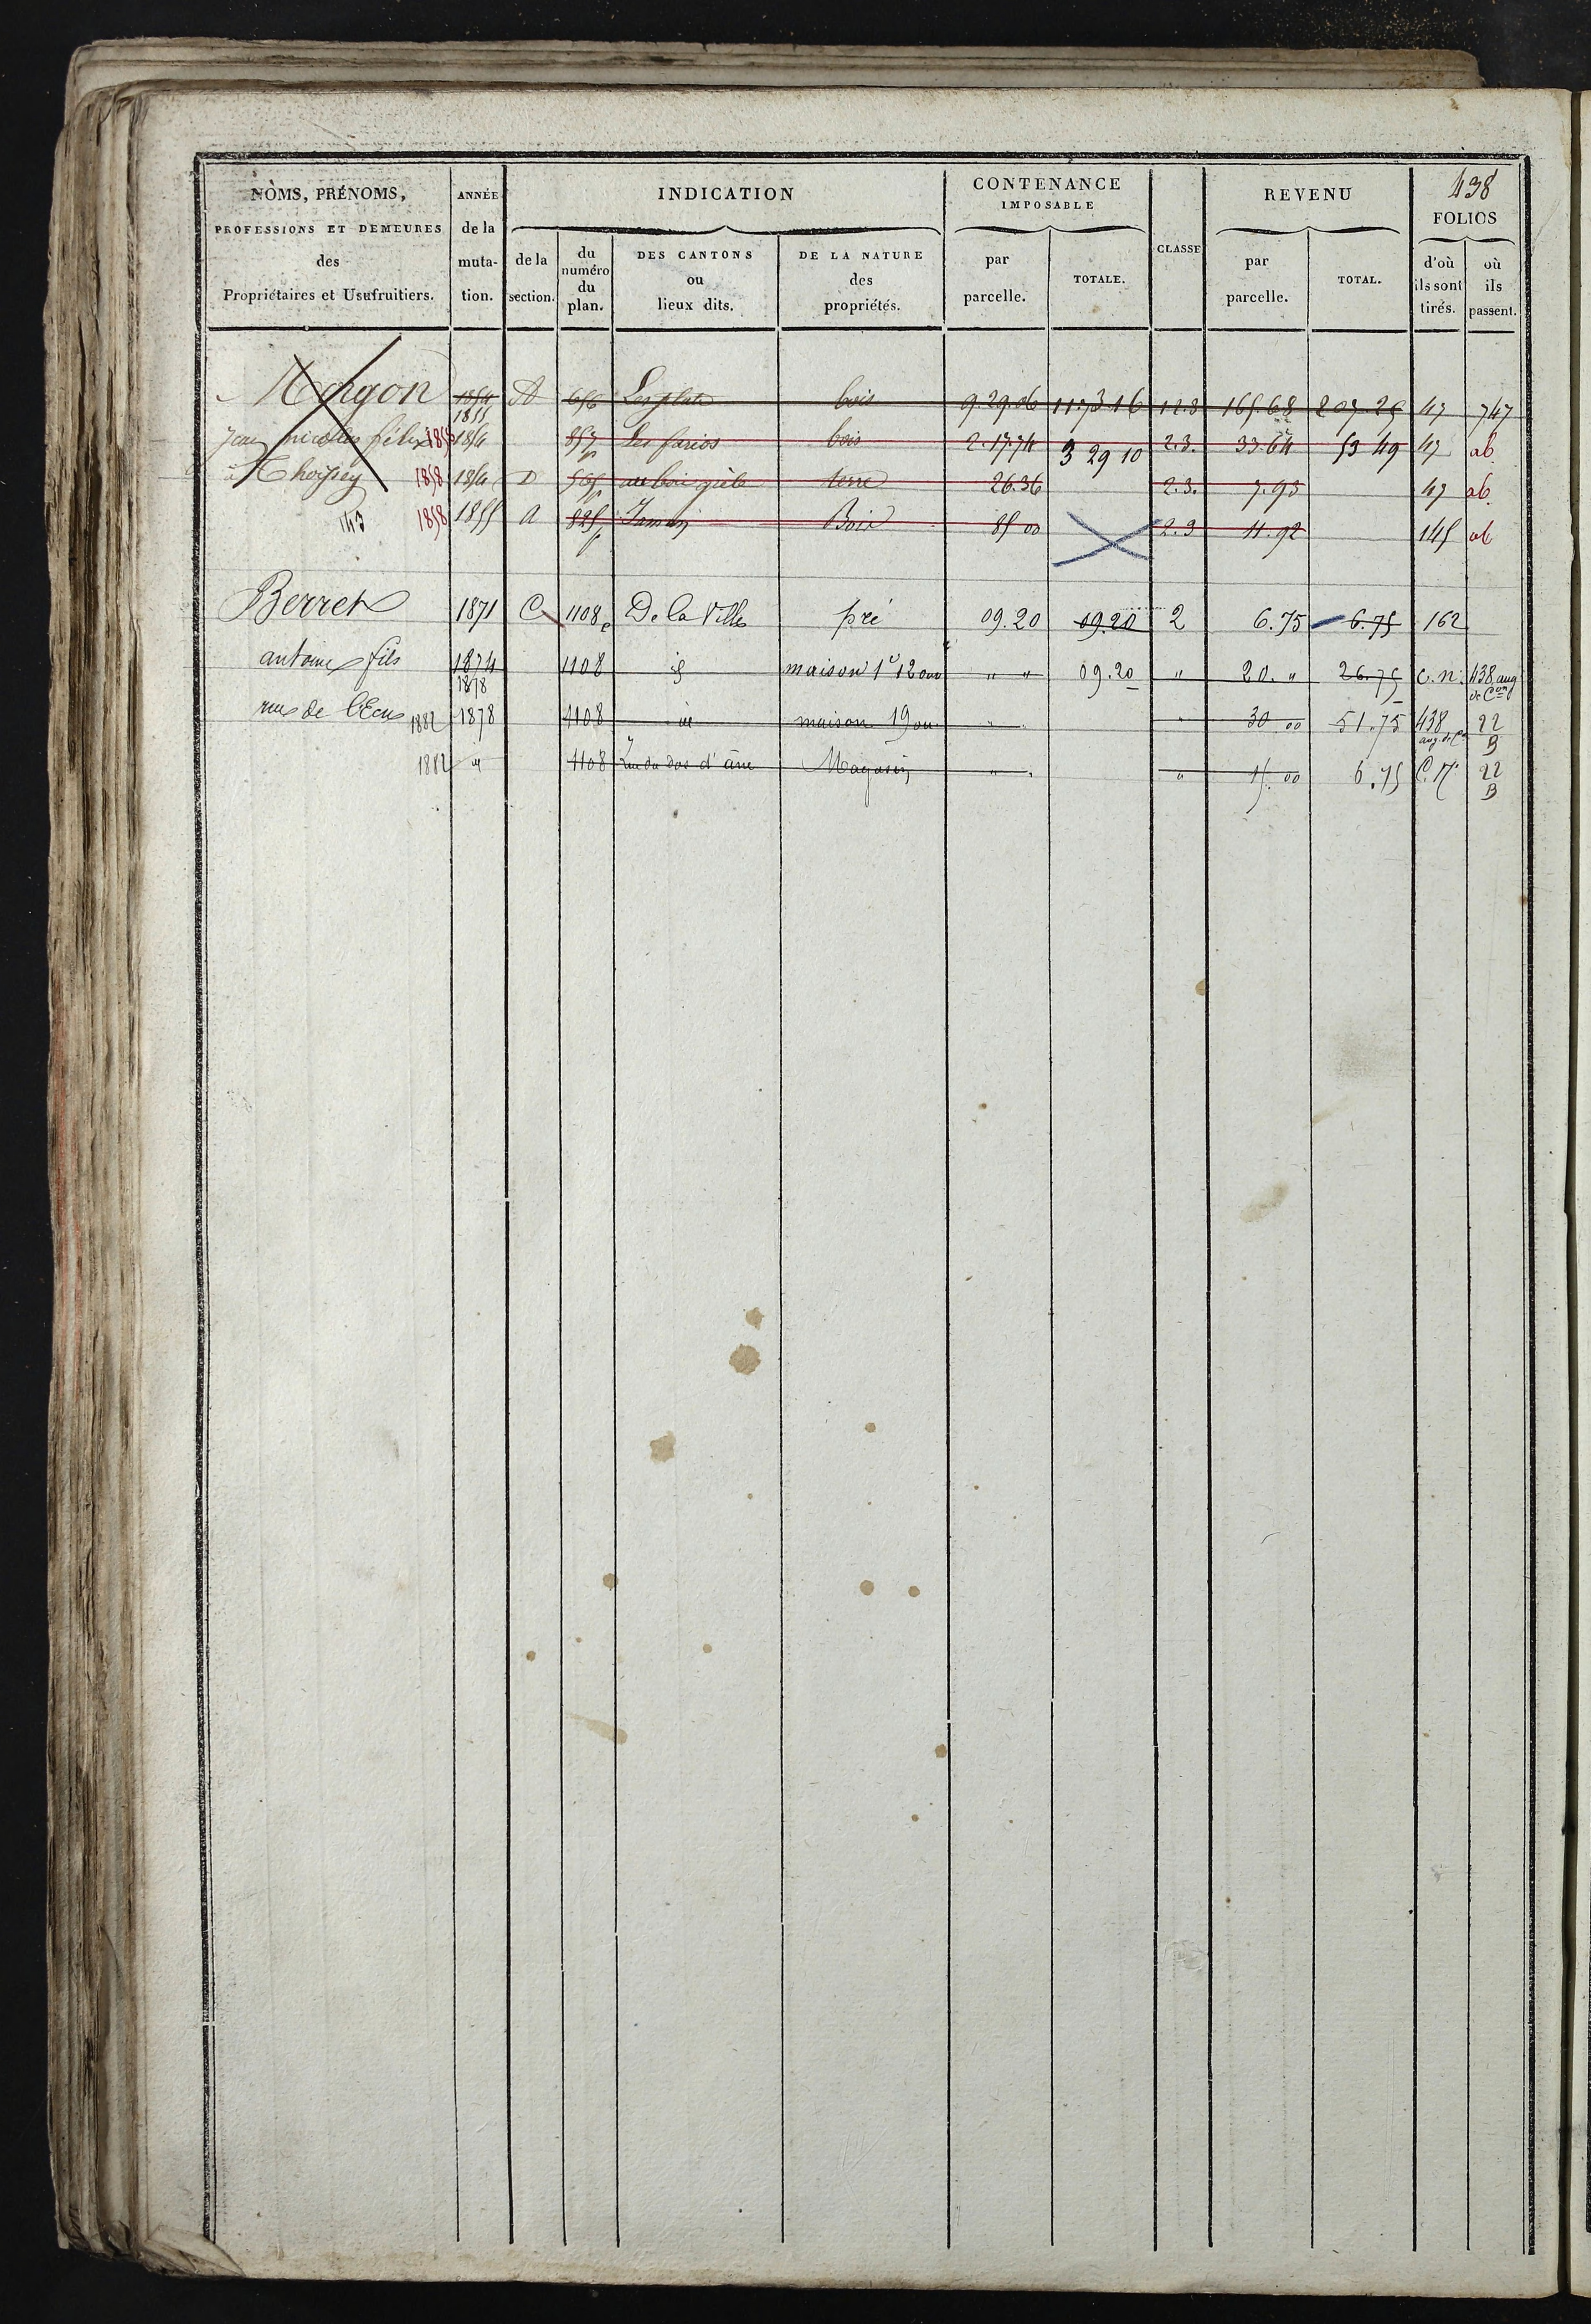 438
NOMS, PRÉNOMS, PROFESSIONS ET DEMEURES des Propriétaires et Usufruitiers.
ANNÉE de la mutation.
INDICATION
de la section.
du numéro du plan.
DES CANTONS ou lieux dits.
DE LA NATURE des propriétés.
CONTENANCE IMPOSABLE
par parcelle.
TOTALE.
CLASSE
REVENU
par parcelle.
TOTAL.
FOLIOS
d'où ils sont tirés.
où ils passent.
1854 1855 A 656 Les plats bois 9.29.06 11.73.16 1.2.3 165.68 207.25 47 747
Jean nicolas félix 1858 1854 857p Les bois 2.17.74 3 29 10 2.3. 33.64 53 49 47 ab
à Thoissey 1858 1854 D 565p au bois terre 26.36 2.3. 7.93 47 ab.
1858 1855 A 825p Bois 85 00 2.3 11.92 145 ab
Berret 1871 C 1108p De la Ville pré 09.20 09.20 2 6.75 6.75 162
antoine fils 1874 1878 1108 id maison 1e 12 ouv " " 09.20 " 20. " 26.75 C.n. 438 aug de Con
rue de l'Ecu 1882 1878 1108 id maison 19 ouv " " 30 00 51.75 438 aug. de Con 22 B
1882 id 1108 Rue du dos d'âne Magasin " " 15.00 6.75 C.N. 22 B